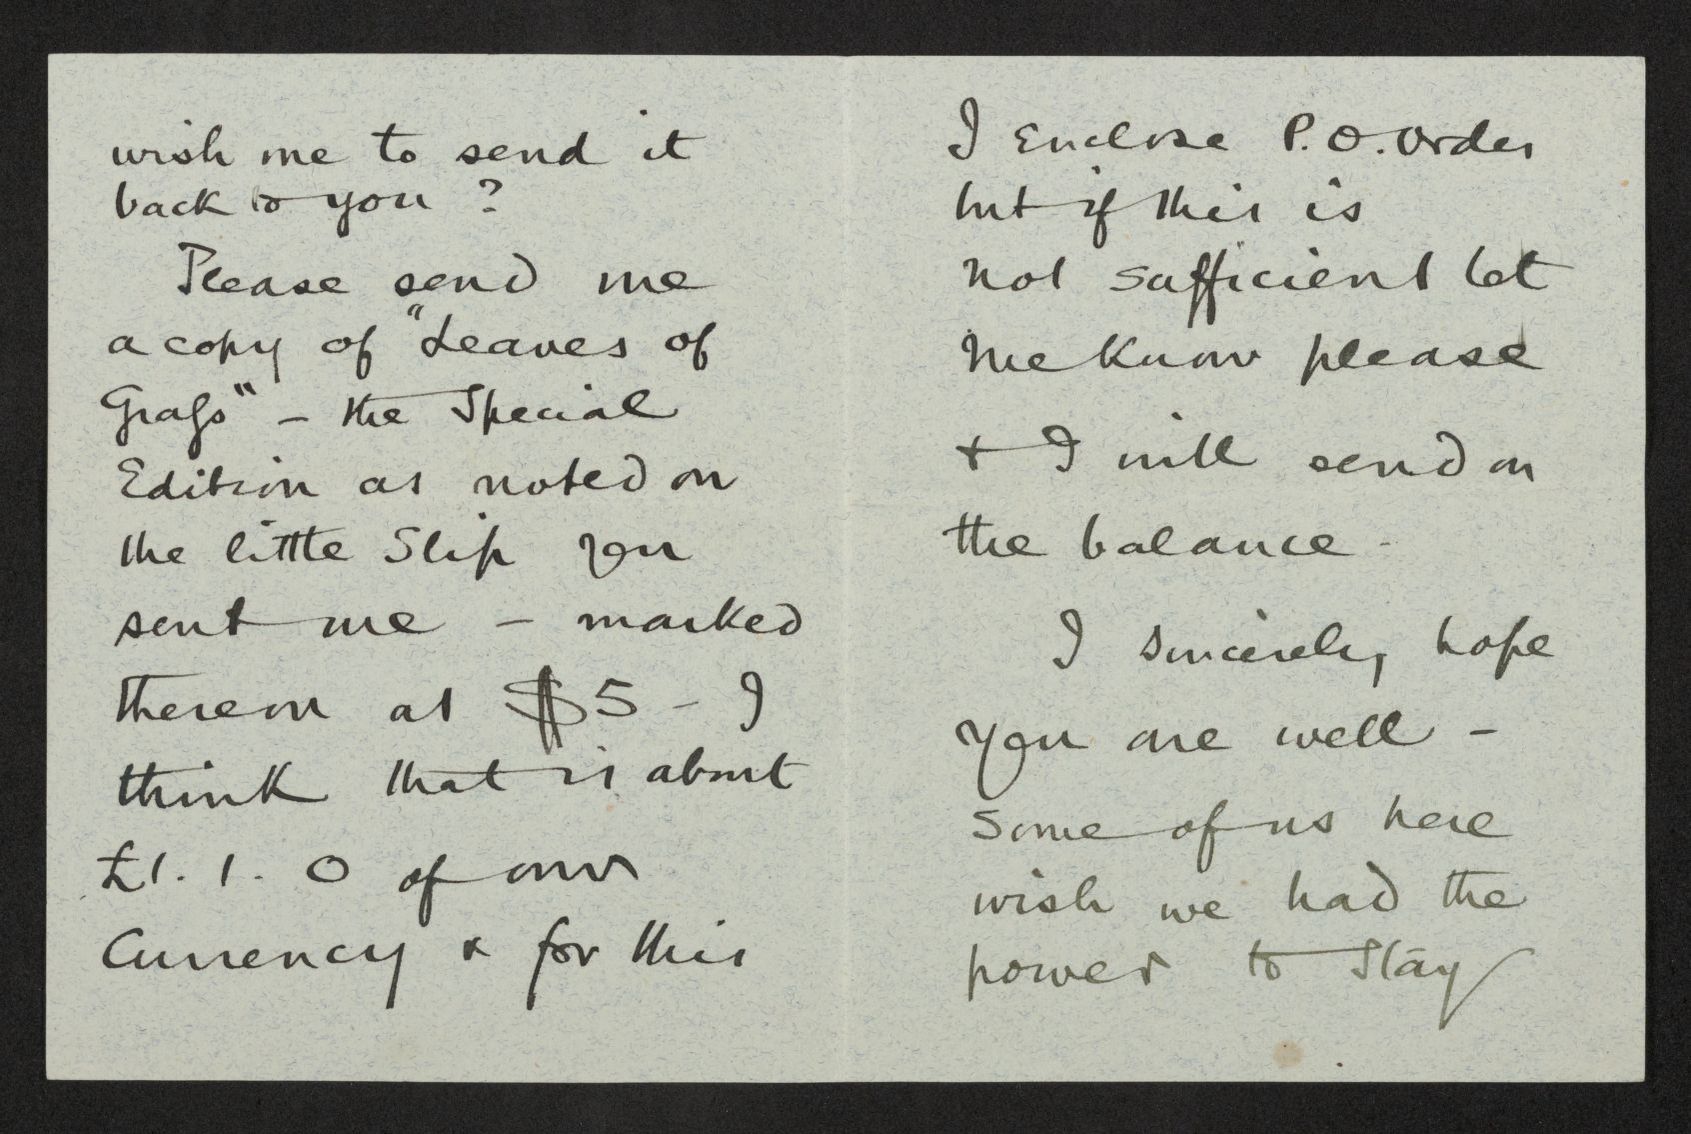 wish me to send it
back to you ?
Please send me
a copy of "Leaves of
Grass" - the Special
Edition as noted on
the little Slip you
sent me - marked
thereon at $5 - I
think that is about
£1. 1. 0 of our
Currency & for this
I Enclose P.O. Order
but if this is
not sufficient let
me Know please
& I will send on
the balance -
I sincerely hope
you are well -
Some of us here
wish we had the
power to Stay